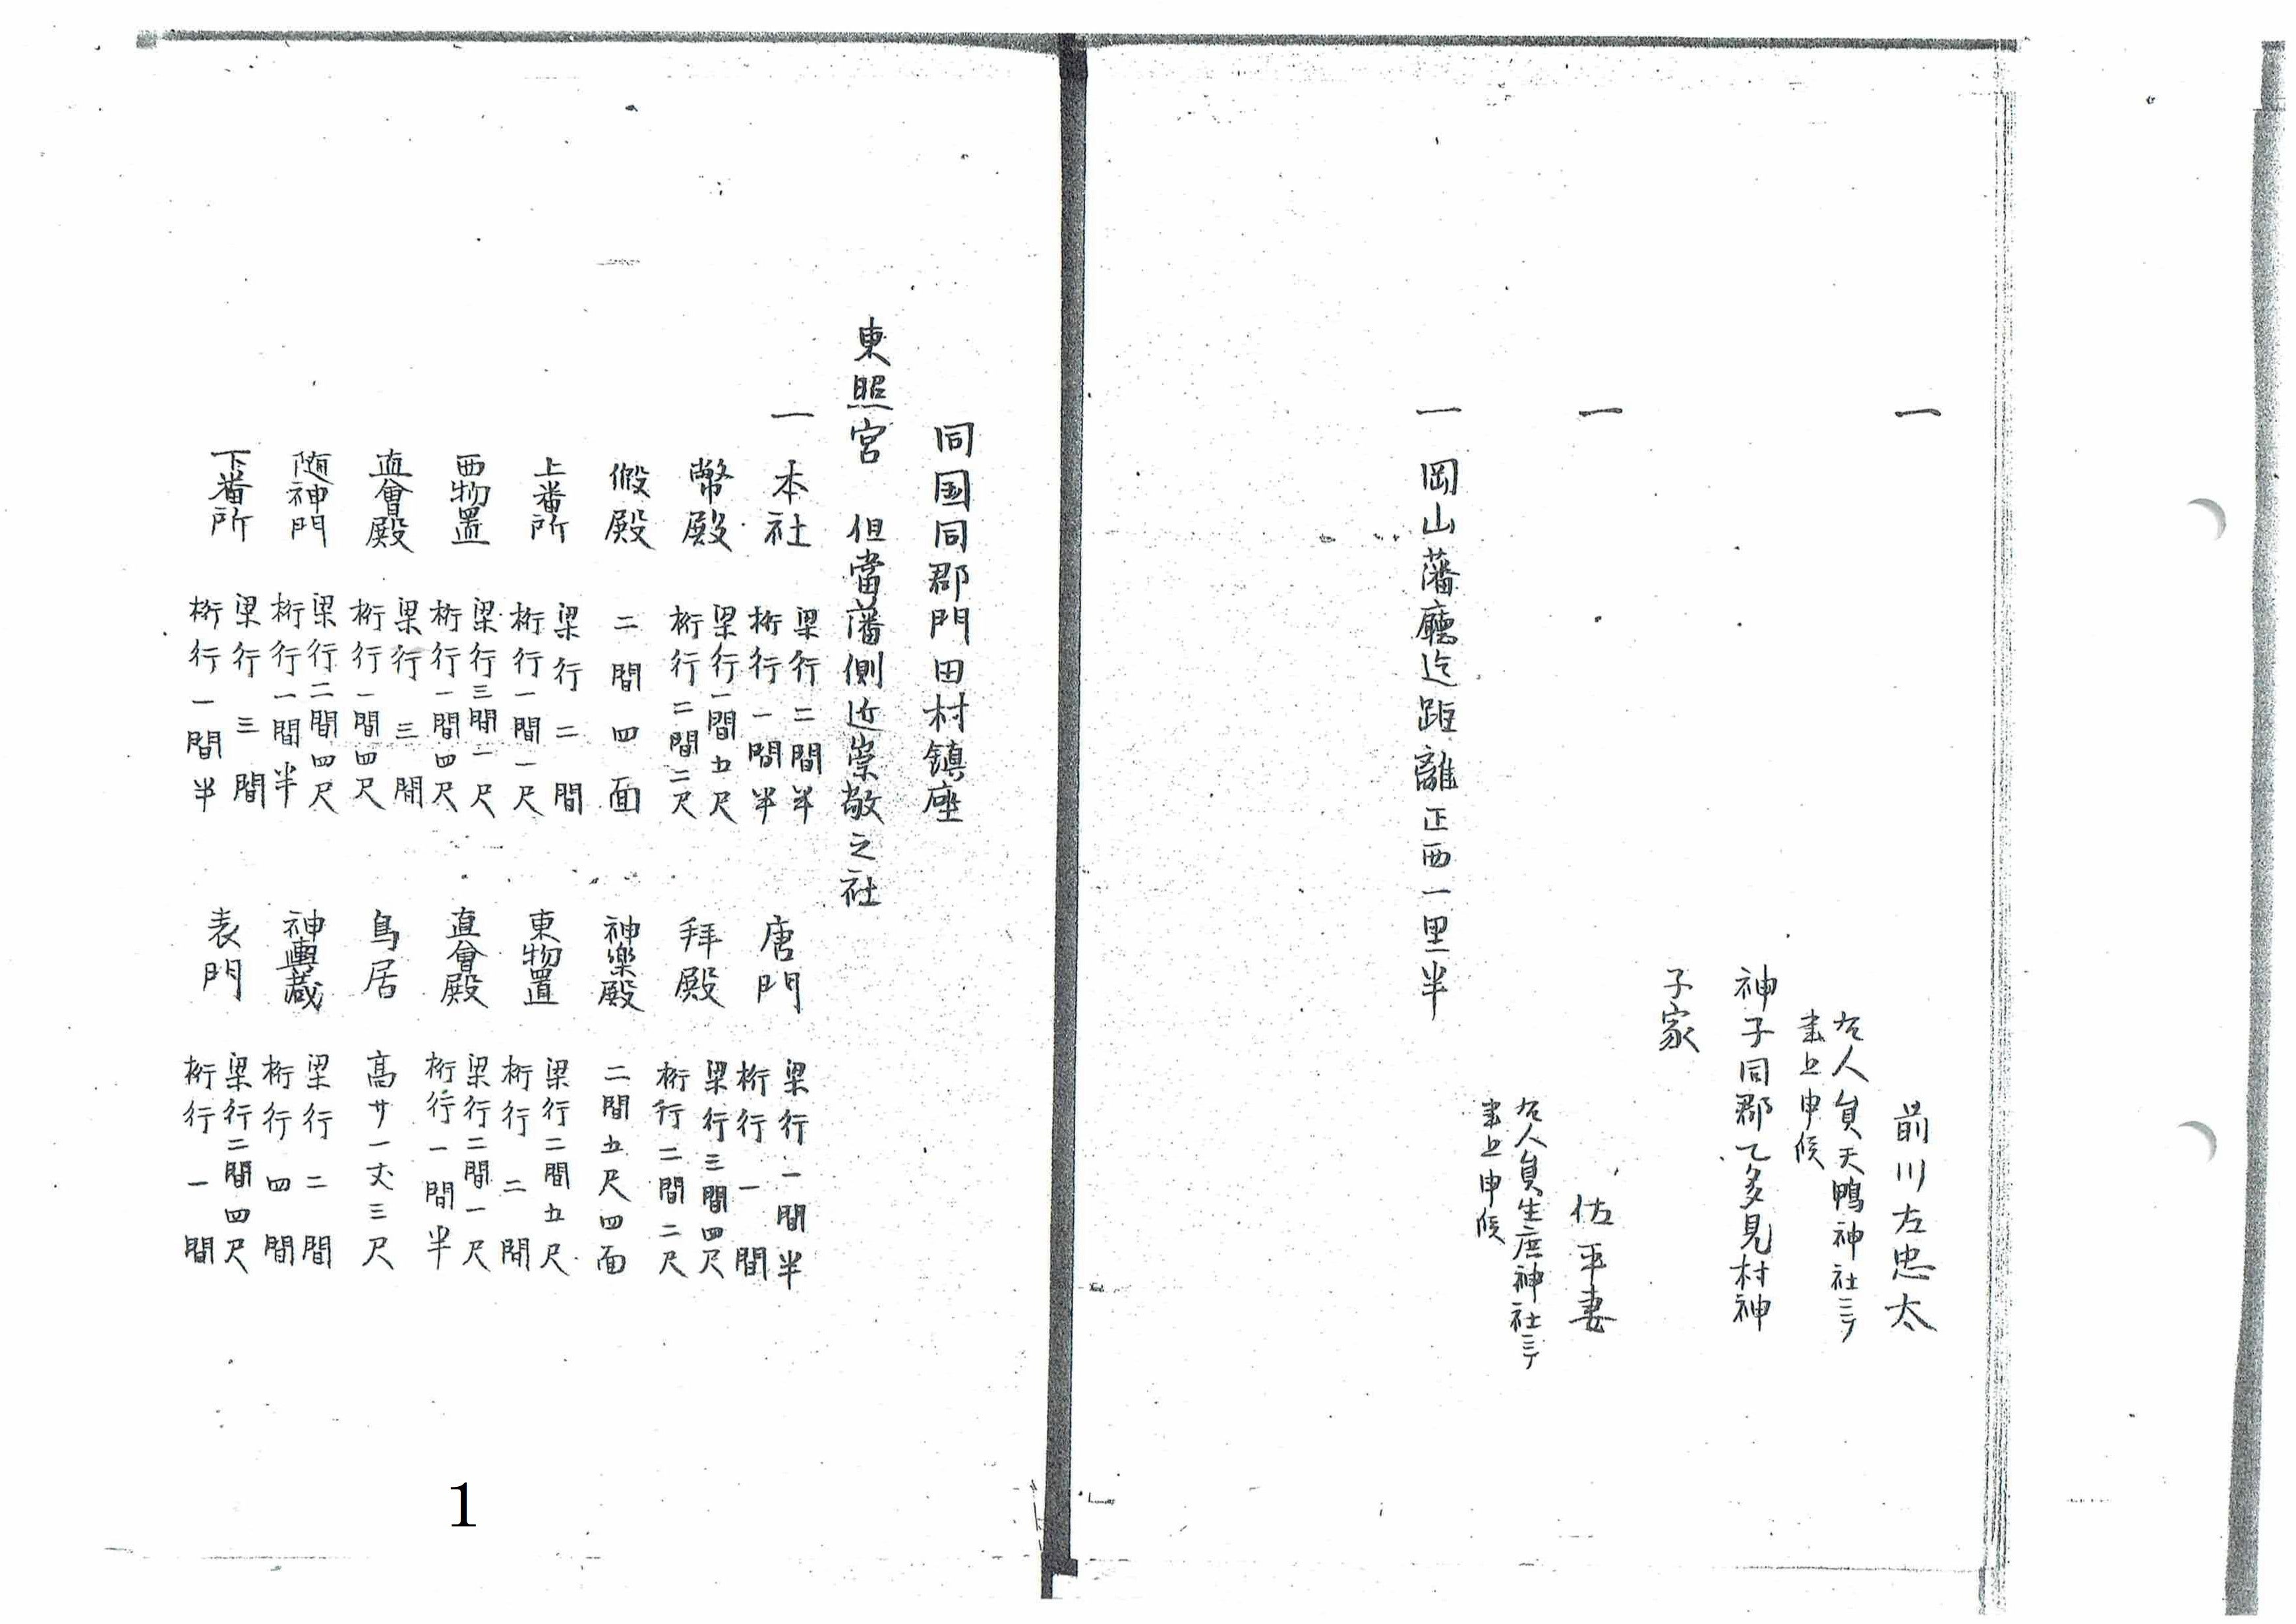 一　前川左忠太
右人員天鴨神社ニテ
書上申候
神子同郡乙多見村神
子家
一　佐平妻
右人員生庶神社ニテ
書上申候
一 岡山藩廳迄距離正西一里半
同国同郡門田村鎮座
東照宮　但當藩側近崇敬之社
一 本社　梁行二間半　桁行一間半　唐門　梁行一間半　桁行一間
幣殿　梁行一間五尺　桁行二間二尺　拜殿　梁行三間四尺　桁行二間二尺
假殿　二間四面　神楽殿　二間五尺四面
上番所　梁行二間　桁行一間一尺　東物置　梁行二間五尺　桁行二間
西物置　梁行三間二尺　桁行一間四尺　直會殿　梁行二間一尺　桁行一間半
直會殿　梁行三間　桁行一間四尺　鳥居　高サ一丈三尺
随神門　梁行二間四尺　桁行一間半　神輿蔵　梁行二間　桁行四間
下番所　梁行三間　桁行一間半　表門　梁行二間四尺　桁行一間
1